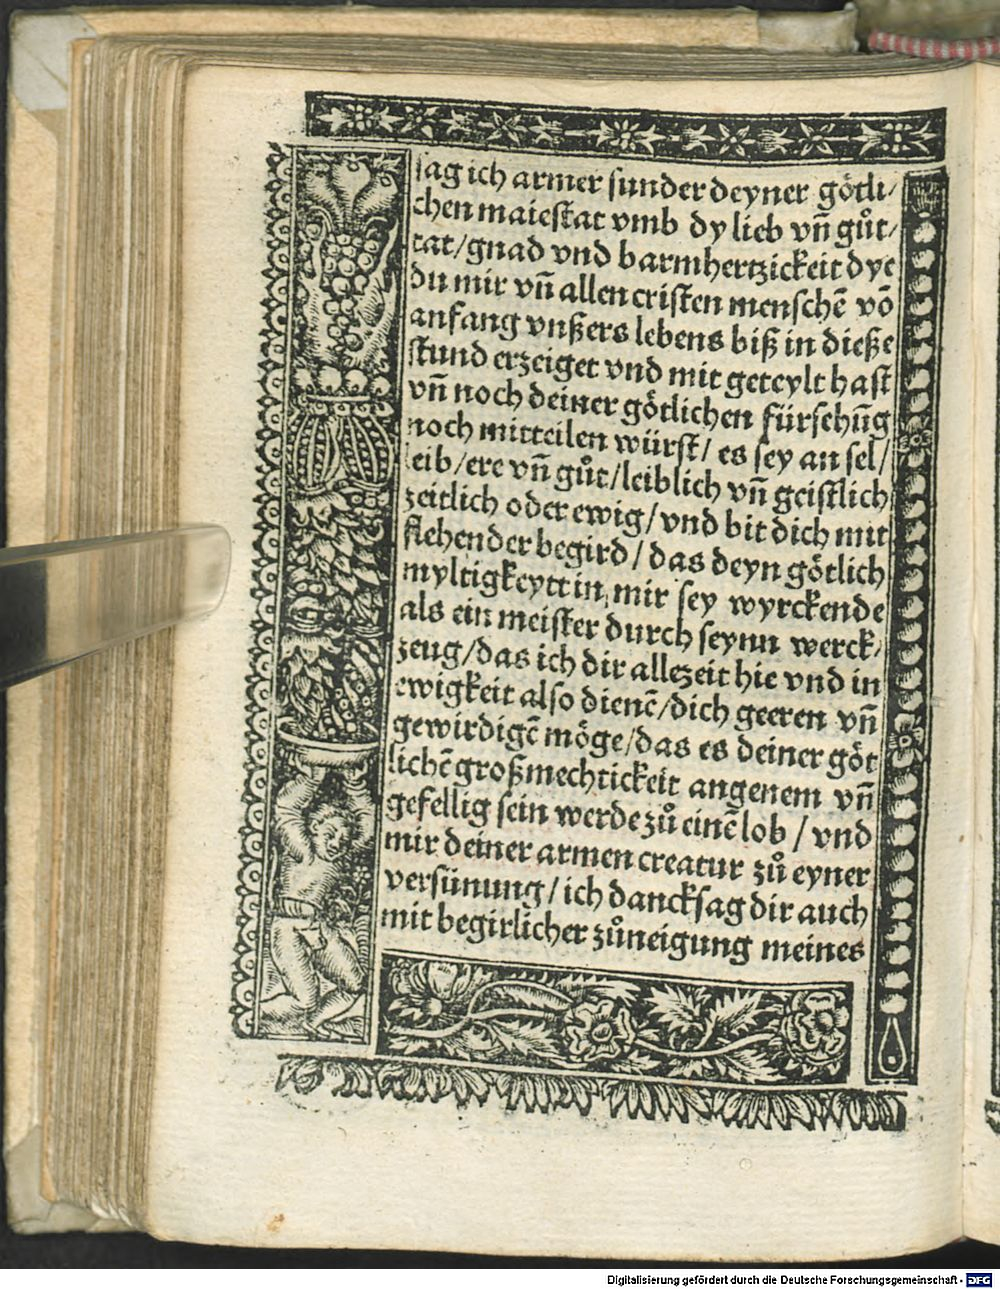 sag ich armer sunder deyner götli/
chen maiestat vmb dy lieb vn̄ gůt/
tat/gnad vnd barmhertzickeit dye
du mir vn̄ allen cristen menschē vō
anfang vnßers lebens biß in dieße
stund erzeiget vnd mit geteylt hast
vn̄ noch deiner götlichen fürsehūg
noch mitteilen würst/ es sey an sel/
leib/ere vn̄ gůt/leiblich vn̄ geistlich
zeitlich oder ewig/vnd bit dich mit
flehender begird/ das deyn götlich
myltigkeytt in mir sey wyrckende
als ein meister durch seynn werck/
zeug/das ich dir allezeit hie vnd in
ewigkeit also dienē/dich geeren vn̄
gewirdigē möge/das es deiner göt
lichē großmechtickeit angenem vn̄
gefellig sein werde zů einē lob / vnd
mir deiner armen creatur zů eyner
versünung/ich dancksag dir auch
mit begirlicher zůneigung meines
Digitalisierung gefördert durch die Deutsche Forschungsgemeinschaft - DFG